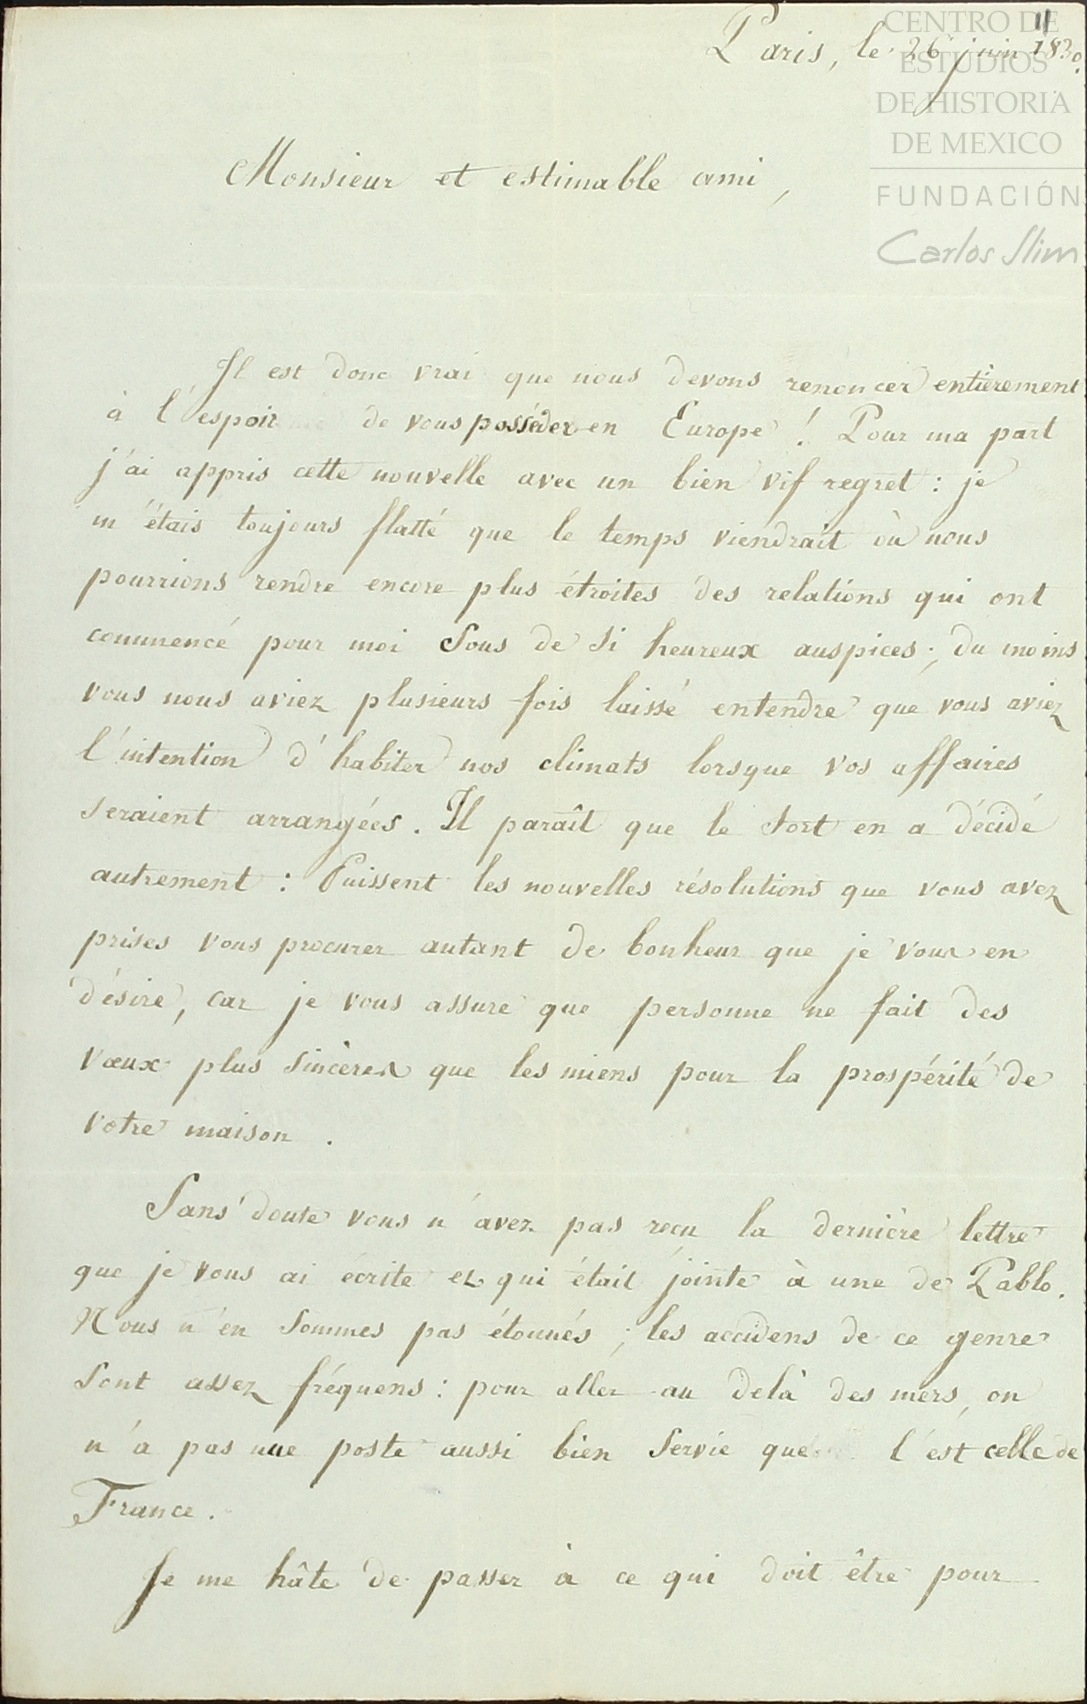 11
Paris, le 26 juin 1830.
CENTRO DE
ESTUDIOS
DE HISTORIA
DE MEXICO
FUNDACIÓN
Carlos Slim
Monsieur et estimable ami,
Il est donc vrai que nous devons renoncer entièrement
à l'espoir de vous posséder en Europe ! Pour ma part
j'ai appris cette nouvelle avec un bien vif regret : je
m'étais toujours flatté que le temps viendrait où nous
pourrions rendre encore plus étroites des relations qui ont
commencé pour moi sous de si heureux auspices ; du moins
vous nous aviez plusieurs fois laissé entendre que vous aviez
l'intention d'habiter nos climats lorsque vos affaires
seraient arrangées. Il paraît que le sort en a décidé
autrement : Puissent les nouvelles résolutions que vous avez
prises vous procurer autant de bonheur que je vous en
désire, car je vous assure que personne ne fait des
vœux plus sincères que les miens pour la prospérité de
votre maison.
Sans doute vous n'avez pas reçu la dernière lettre
que je vous ai écrite et qui était jointe à une de Pablo.
Nous n'en sommes pas étonnés ; les accidens de ce genre
sont assez fréquens : pour aller au delà des mers, on
n'a pas une poste aussi bien servie que l'est celle de
France.
Je me hâte de passer à ce qui doit être pour